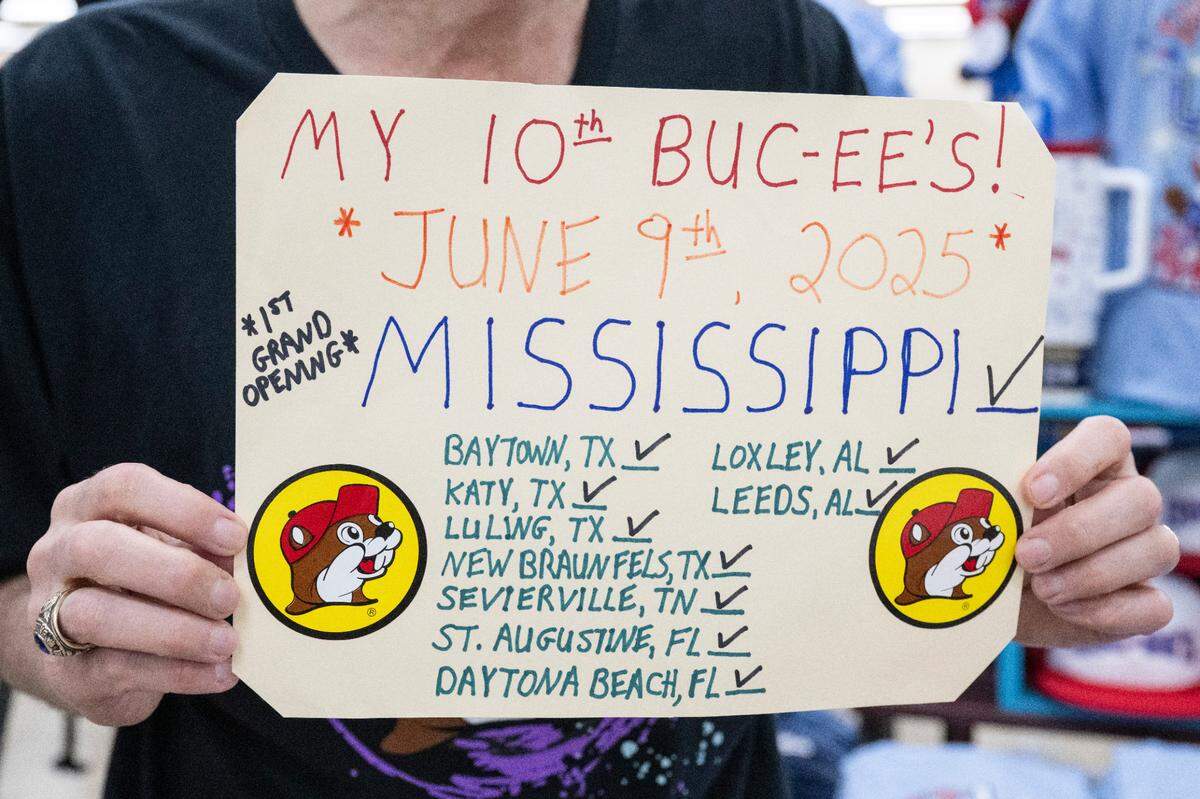 MY 10th BUC-EE'S!
* JUNE 9th, 2025 *
*1ST
GRAND
OPENING*
MISSISSIPPI ✓
BAYTOWN, TX ✓
KATY, TX ✓
LULING, TX ✓
NEW BRAUNFELS, TX ✓
SEVIERVILLE, TN ✓
ST. AUGUSTINE, FL ✓
DAYTONA BEACH, FL ✓
LOXLEY, AL ✓
LEEDS, AL ✓
®
®